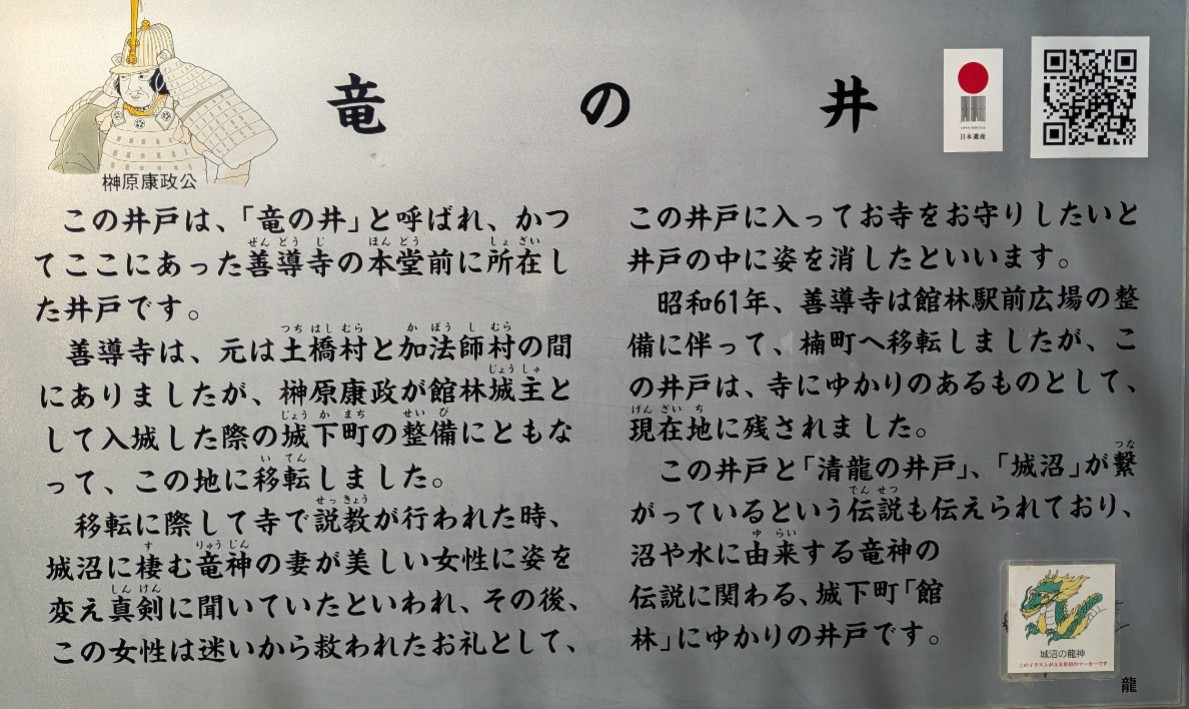 竜の井
榊原康政公
日本遺産
この井戸は、「竜の井」と呼ばれ、かつ
てここにあった善導寺の本堂前に所在し
た井戸です。
善導寺は、元は土橋村と加法師村の間
にありましたが、榊原康政が館林城主と
して入城した際の城下町の整備にともな
って、この地に移転しました。
移転に際して寺で説教が行われた時、
城沼に棲む竜神の妻が美しい女性に姿を
変え真剣に聞いていたといわれ、その後、
この女性は迷いから救われたお礼として、
この井戸に入ってお寺をお守りしたいと
井戸の中に姿を消したといいます。
昭和61年、善導寺は館林駅前広場の整
備に伴って、楠町へ移転しましたが、こ
の井戸は、寺にゆかりのあるものとして、
現在地に残されました。
この井戸と「清龍の井戸」、「城沼」が繋
がっているという伝説も伝えられており、
沼や水に由来する竜神の
伝説に関わる、城下町「館
林」にゆかりの井戸です。
城沼の龍神
龍